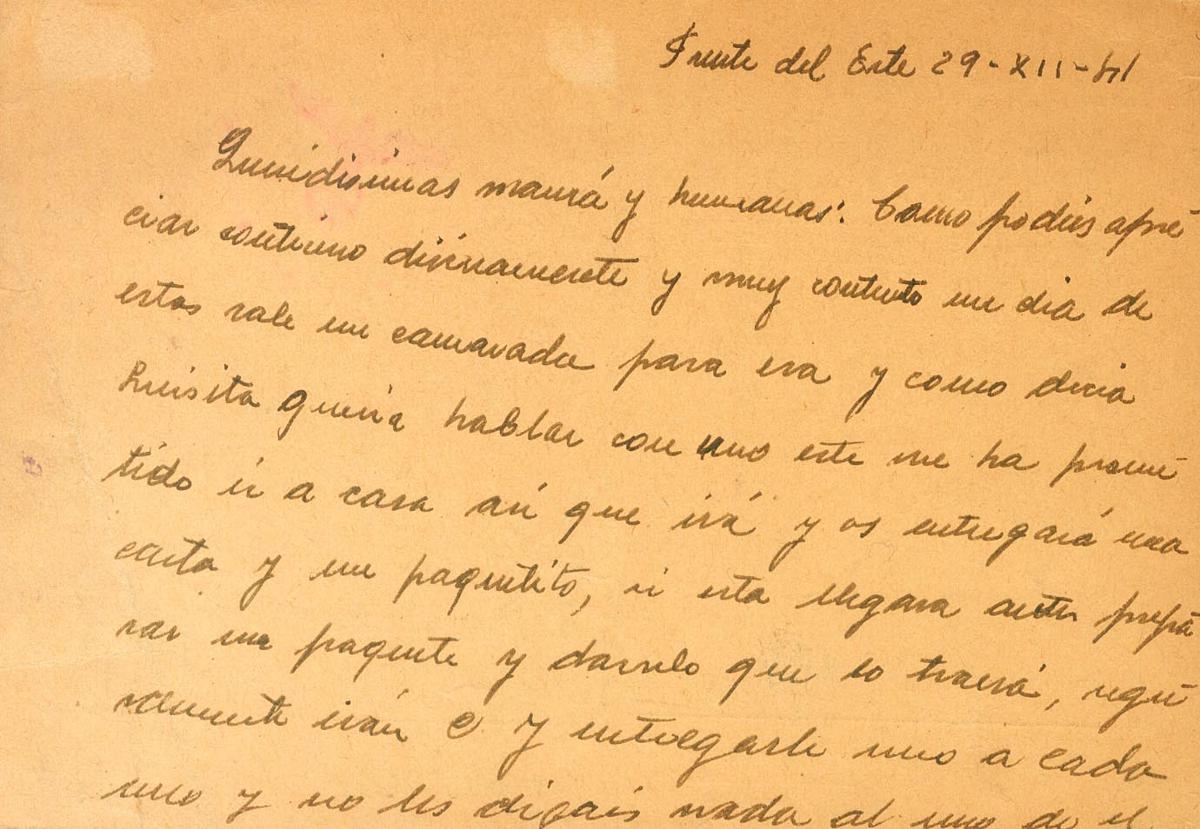 Frente del Este 29-XII-41
Queridisimas mamá y hermanas: Como podeis apre
ciar continuo divinamente y muy contento un dia de
estos sale un camarada para esa y como decia
Luisita queria hablar con uno este me ha prome
tido ir a casa asi que irá y os entregará una
carta y un paquetito, si esta llegara antes prepa
rar un paquete y darselo que lo traerá, segu
ramente irán 2 y entregarle uno a cada
uno y no les digais nada al uno de el